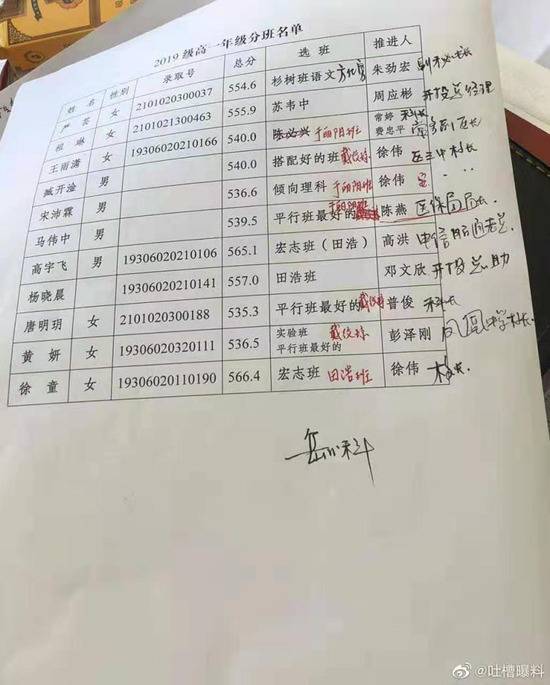 2019级高一年级分班名单
姓 名 性别 录取号 总分 选 班 推进人
严 荟 女 2101020300037 554.6 杉树班语文 朱劲宏
程 琳 女 2101021300463 555.9 苏韦中 周应彬 开投总经理
王雨潇 女 19306020210166 540.0 陈必兴 于丽阳班 常婷 科长 费忠平
臧开淦 男 搭配好的班 戴俊标 徐伟 区三中村长
宋沛霖 男 536.6 倾向理科 于丽阳班 徐伟
马伟中 539.5 平行班最好的 于丽阳班 陈燕 医保局局长
高宇飞 男 19306020210106 565.1 宏志班（田浩） 高洪
杨晓晨 19306020210141 557.0 田浩班 邓文欣 开投总助
唐明玥 女 2101020300188 535.3 平行班最好的 普俊 科长
黄 妍 女 19306020320111 536.5 实验班 平行班最好的 彭泽刚 凤凰中学村长
徐 童 女 19306020110190 566.4 宏志班 田浩班 徐伟 校长
@吐槽曝料